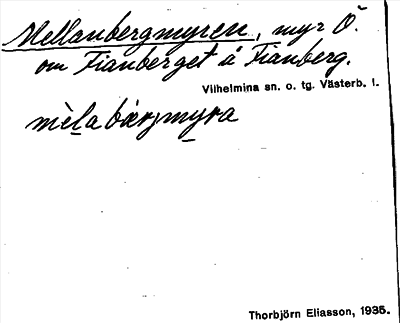 Mellanbergmyren, myr Ö.
om Fianberget å Fianberg.
Vilhelmina sn. o. tg. Västerb. l.
mèlabærjmyra
Thorbjörn Eliasson, 1935.